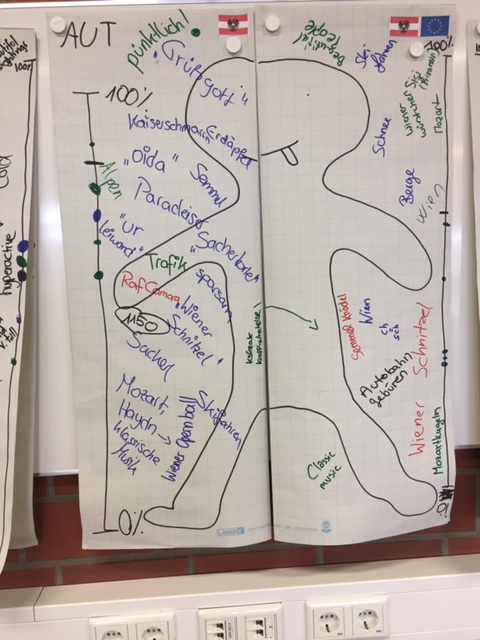 AUT
pünktlich!
"Grüß gott"
100%
Kaiserschmarrn
Erdäpfel
"Oida"
Alpen
Semmel
Paradeiser
"ur
leiwand"
"Sachertorte"
Trafik
sparsam
Raf Camora
"Wiener
Schnitzel"
1150
Sacher
Mozart,
Haydn →
klassische
Musik
Wiener Opernball
Skifahren
0%
LANDRÉ
100%
Ski
fahren
Schnee
Wiener
Würstchen
Sisi
(Prinzessin)
Mozart
Berge
Wien
Semmel Knödel
Wien
ch
sch
Autobahn
gebüren
Wiener Schnitzel
Mozartkugeln
Classic
music
0%
hyperactive
cold
100%